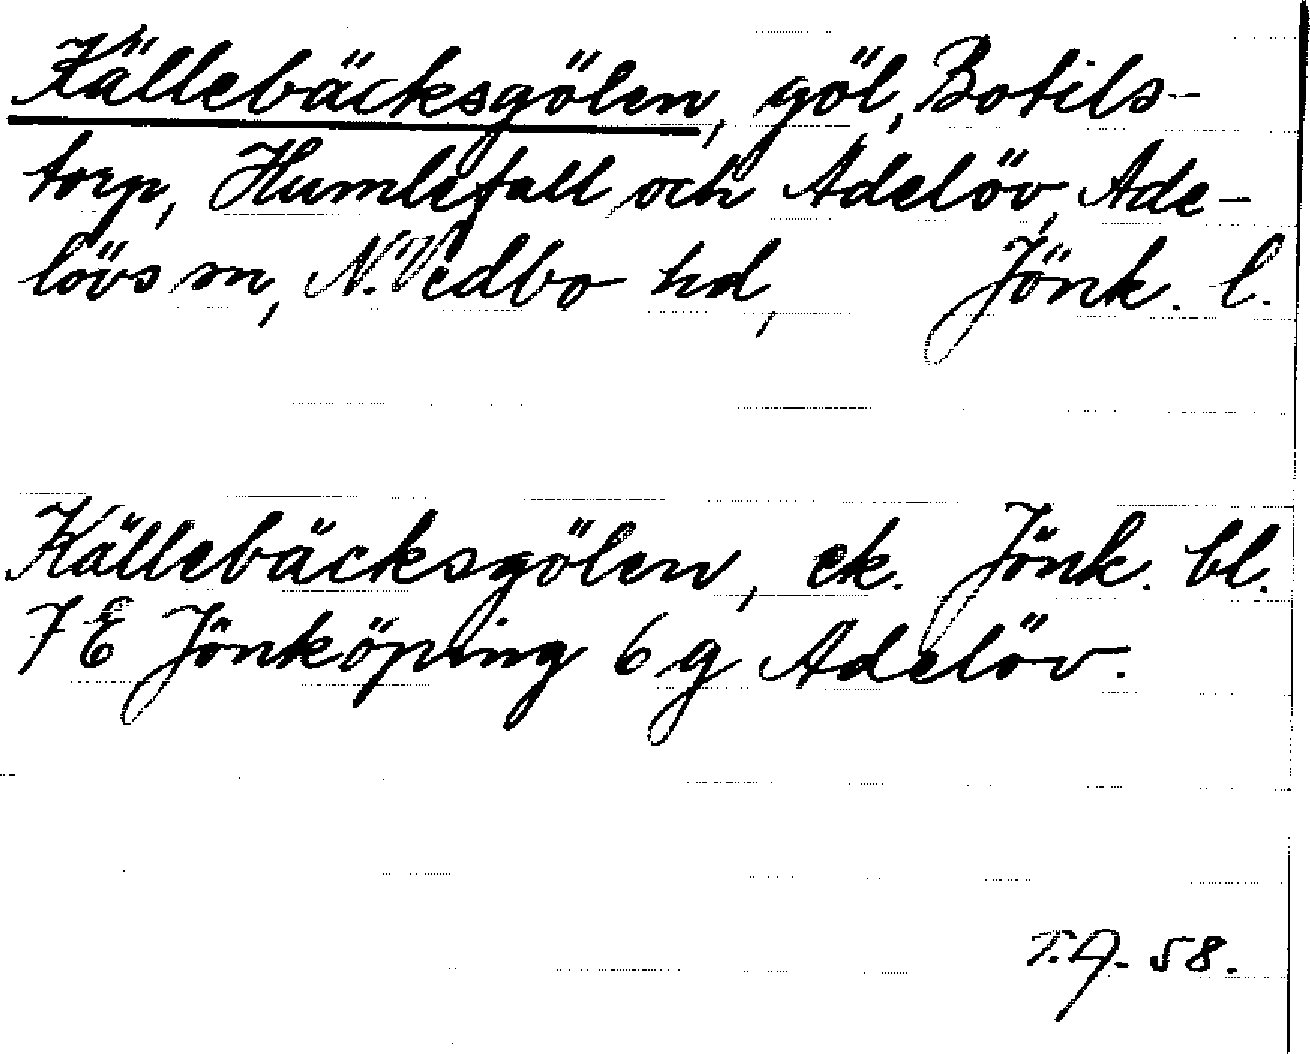 Källebäcksgölen, göl, Botils-
torp, Humlefall och Adelöv, Ade-
lövs sn, N. Vedbo hd, Jönk. l.
Källebäcksgölen, ek. Jönk. bl.
7 E Jönköping 6 g Adelöv.
58.